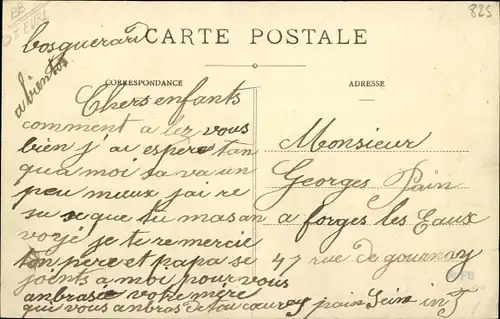 BB
EURE
825
bosguerard
CARTE POSTALE
a bientos
CORRESPONDANCE
ADRESSE
Chers enfants
comment a lez vous
bien j'ai esperes tan
qua moi sa va un
peu mieux jai re
su se que tu mas an
voyé je te remercie
ton père et papa se
joints a moi pour vous
anbrase votre mère
qui vous anbras detou cœur
Monsieur
Georges Pain
a forges les Eaux
47 rue de gournay
pain Sein inf